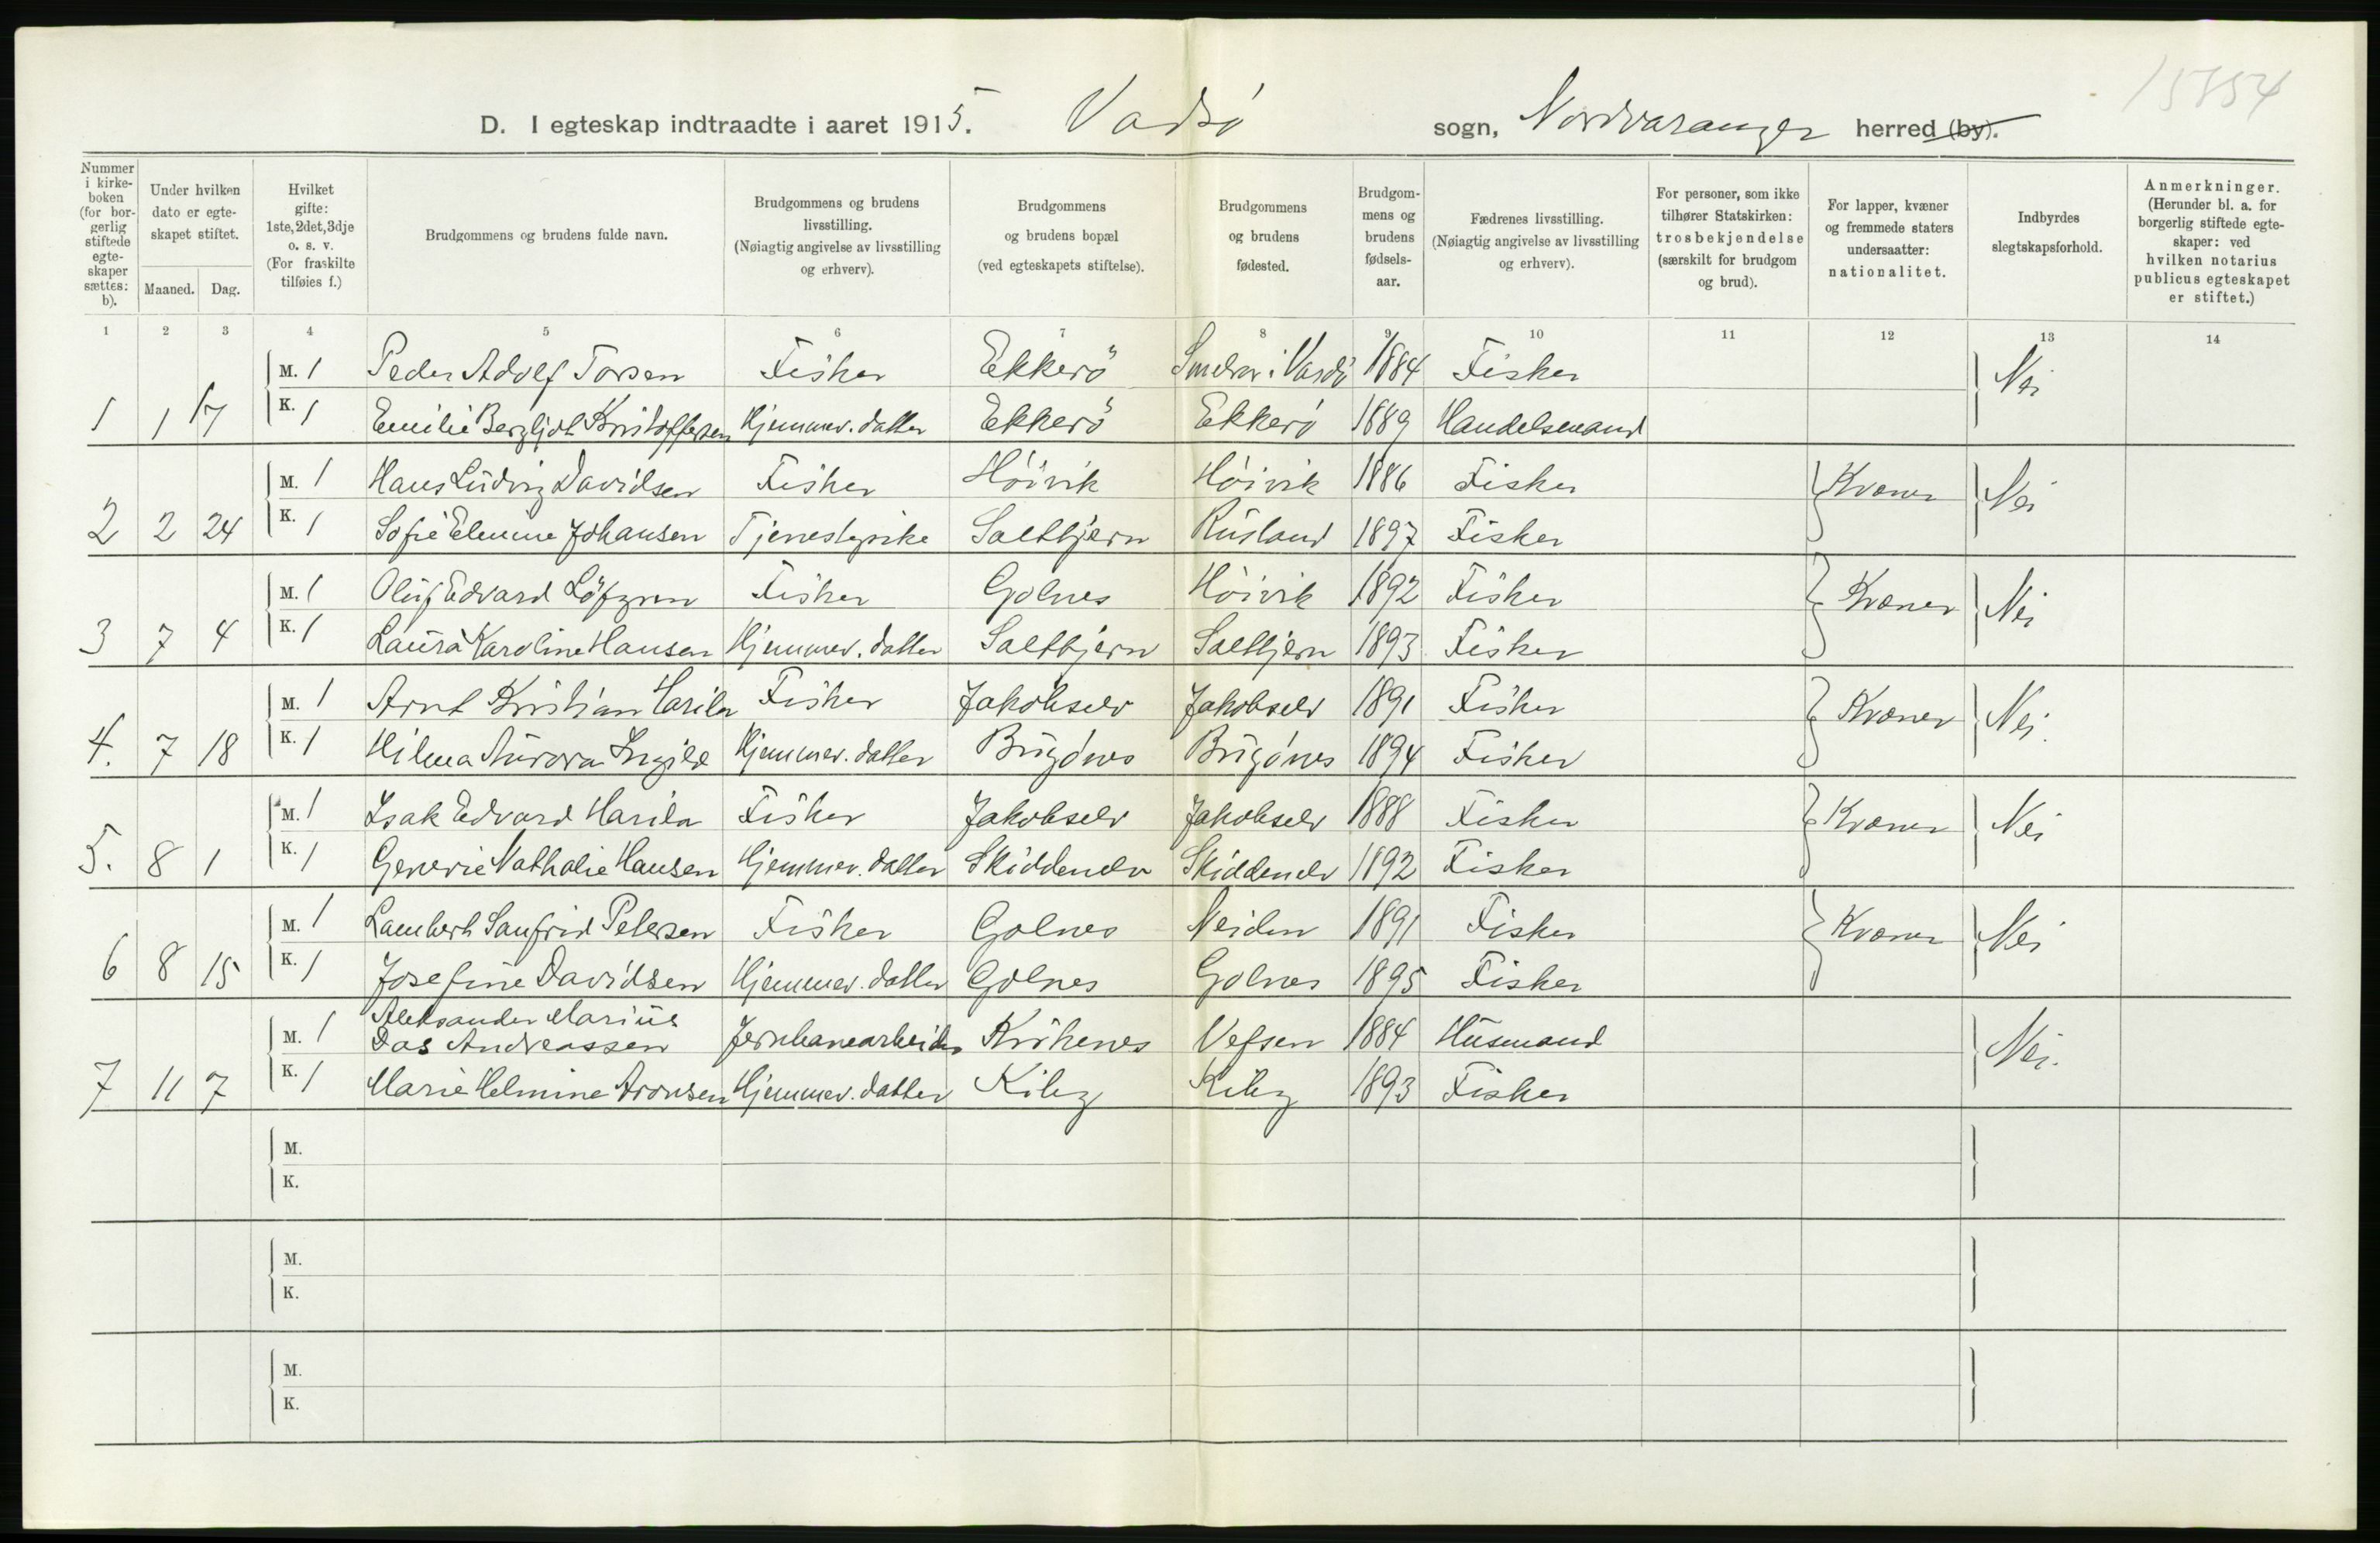 15854
D. I egteskap indtraadte i aaret 1915. Vadsø sogn, Nordvaranger herred (by).
Nummer i kirke-boken (for bor-gerlig stiftede egte-skaper sættes: b).
Under hvilken dato er egte-skapet stiftet.
Maaned. Dag.
Hvilket gifte: 1ste, 2det, 3dje o. s. v. (For fraskilte tilføies f.)
Brudgommens og brudens fulde navn.
Brudgommens og brudens livsstilling. (Nøiagtig angivelse av livsstilling og erhverv).
Brudgommens og brudens bopæl (ved egteskapets stiftelse).
Brudgommens og brudens fødested.
Brudgom-mens og brudens fødsels-aar.
Fædrenes livsstilling. (Nøiagtig angivelse av livsstilling og erhverv).
For personer, som ikke tilhører Statskirken: trosbekjendelse (særskilt for brudgom og brud).
For lapper, kvæner og fremmede staters undersaatter: nationalitet.
Indbyrdes slegtskapsforhold.
Anmerkninger. (Herunder bl. a. for borgerlig stiftede egte-skaper: ved hvilken notarius publicus egteskapet er stiftet.)
1 2 3 4 5 6 7 8 9 10 11 12 13 14
M. 1 Peder Adolf Torsen Fisker Ekkerö i Vardö 1884 Fisker Nei
1 1 17 K. 1 Emilie Bergljot Kristoffersen Hjemmev. datter Ekkerö Ekkerö 1889 Handelsmand
M. 1 Hans Ludvig Davidsen Fisker Höivik Höivik 1886 Fisker Kvæner Nei
2 2 24 K. 1 Sofie Elmine Johansen Tjenestepike Saltbjern Rusland 1897 Fisker
M. 1 Oluf Edvard Löfgren Fisker Golnes Höivik 1892 Fisker Kvæner Nei
3 7 4 K. 1 Laura Karoline Hansen Hjemmev. datter Saltbjern Saltbjern 1893 Fisker
M. 1 Arnt Kristian Harila Fisker Jakobselv Jakobselv 1891 Fisker Kvæner Nei.
4. 7 18 K. 1 Hilma Aurora Hjemmev. datter Brugönes Brugönes 1894 Fisker
M. 1 Isak Edvard Harila Fisker Jakobselv Jakobselv 1888 Fisker Kvæner Nei
5. 8 1 K. 1 Generie Nathalie Hansen Hjemmev. datter Skiddenelv Skiddenelv 1892 Fisker
M. 1 Lambert Sanfrid Petersen Fisker Golnes Neiden 1891 Fisker Kvæner Nei
6 8 15 K. 1 Josefine Davidsen Hjemmev. datter Golnes Golnes 1895 Fisker
Aleksander Marius
M. 1 Das Andreassen Jernbanearbeider Kirkenes Vefsen 1884 Husmand Nei.
7 11 7 K. 1 Marie Helmine Aronsen Hjemmev. datter Kiby Kiby 1893 Fisker
M.
K.
M.
K.
M.
K.